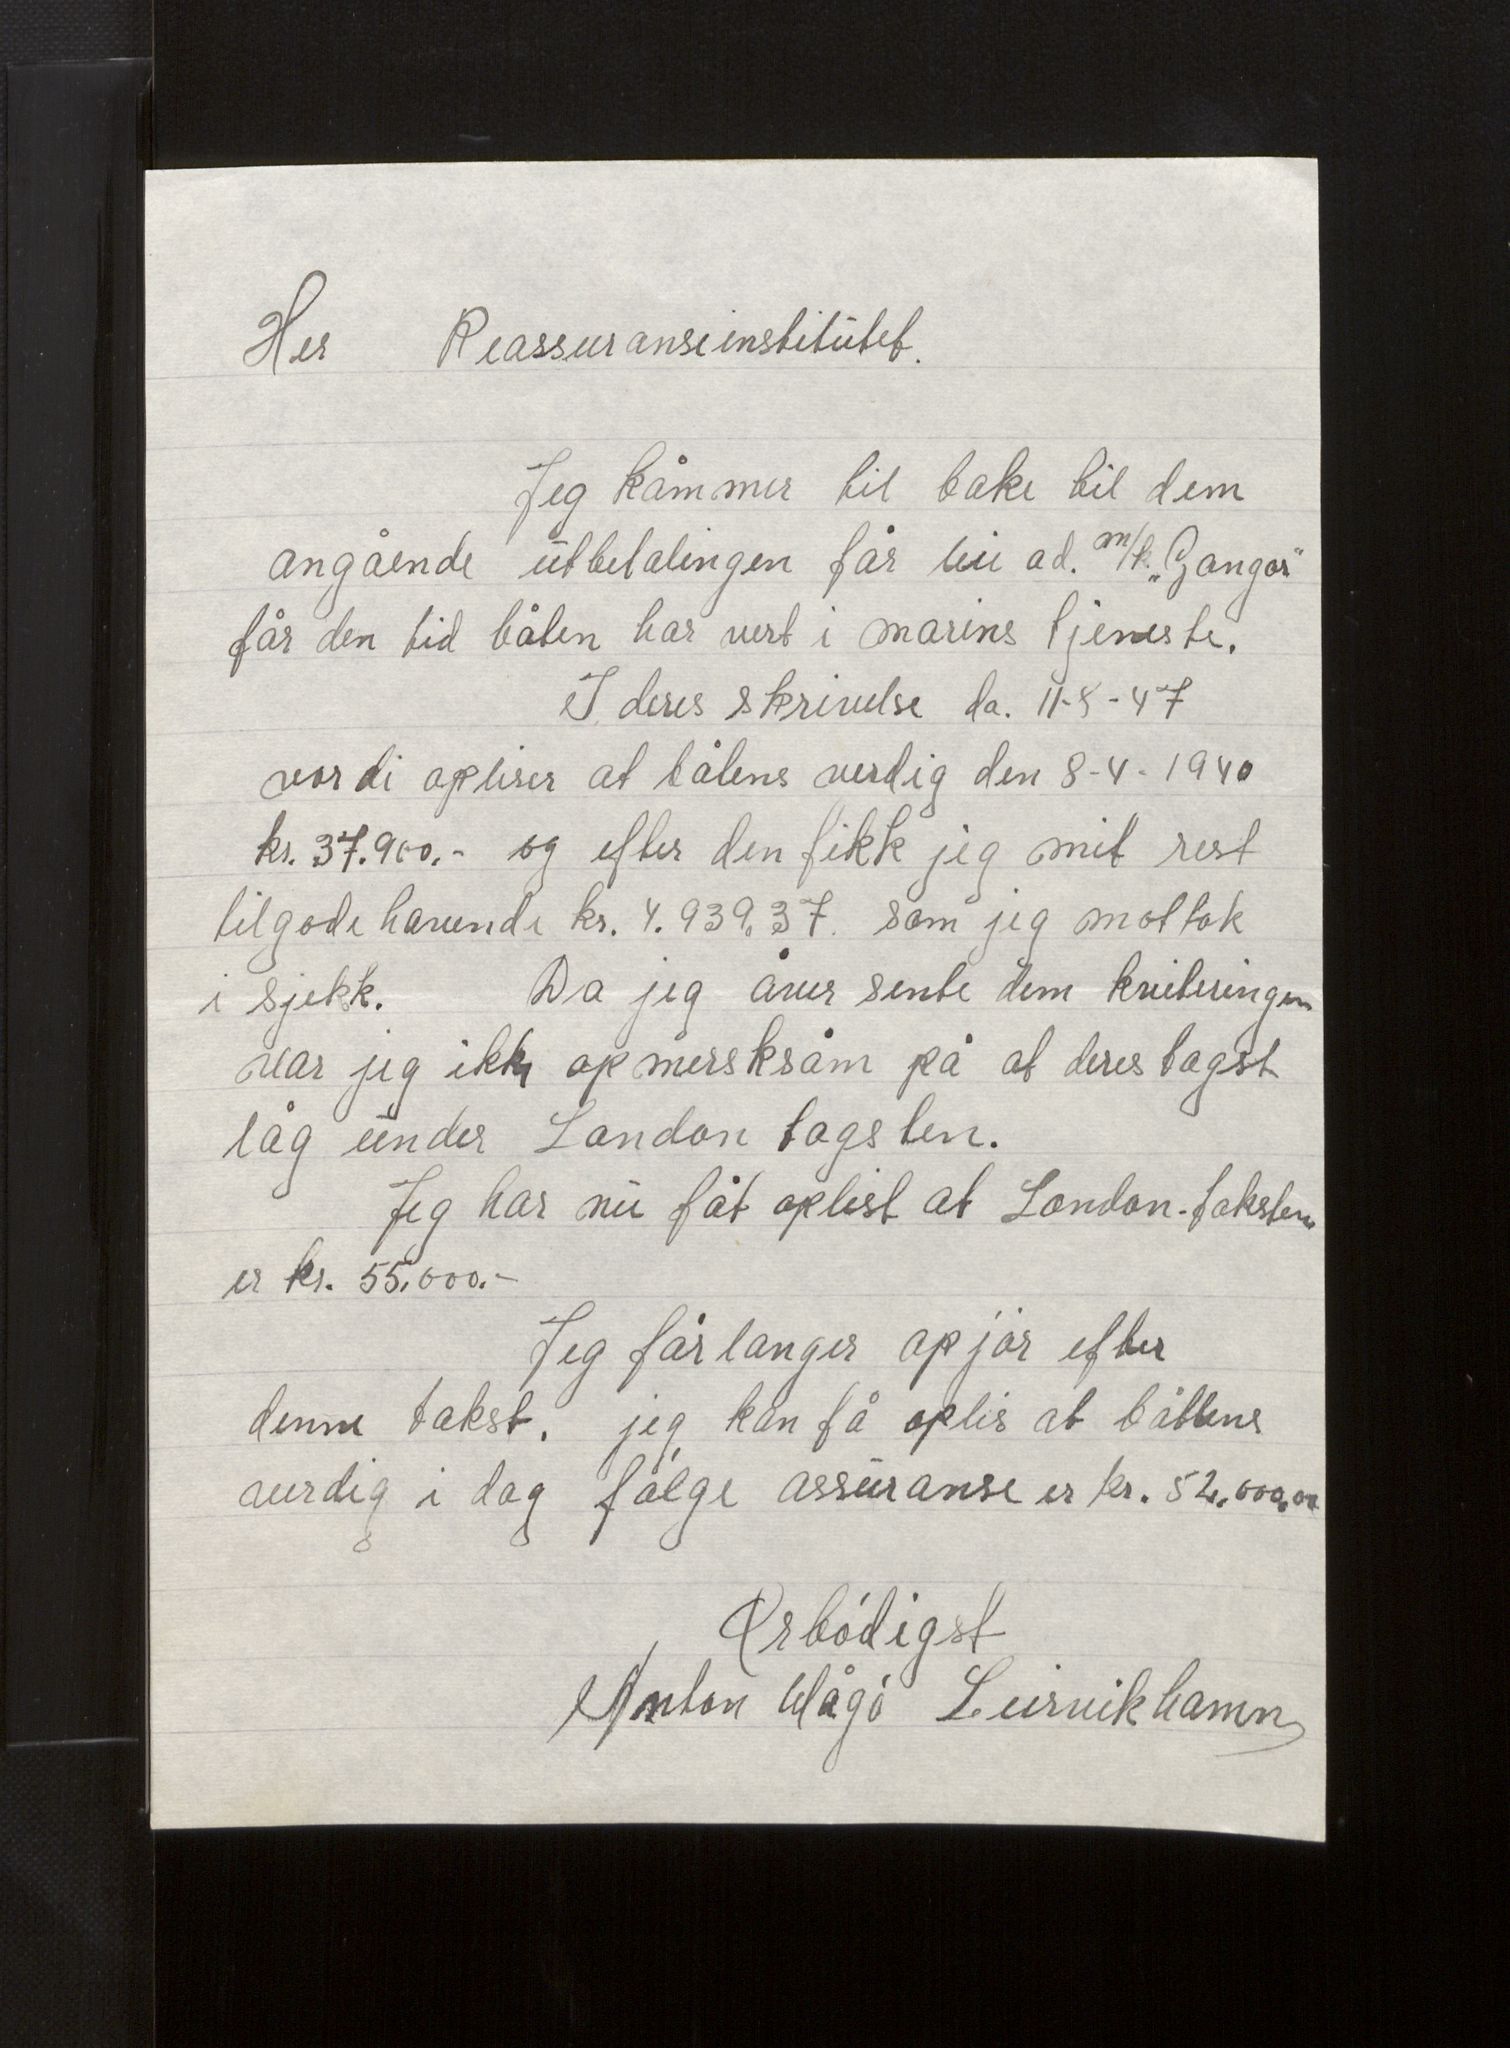 Her Reassuranseinstitutet.
Jeg kåmmer til bake til dem
angående utbetalingen får leie ad. m/k. „Gangar"
får den tid båten har vert i marins tjeneste.
I deres skrivelse da. 11-8-47
vor di opliser at båtens verdig den 8-4-1940
kr. 37.900.- og efter den fikk jeg mit rest
tilgode havende kr. 4.939.37. som jeg mottok
i sjekk. Da jeg åver sente dem kviteringen
var jeg ikke opmersksåm på at deres tagst
låg under London tagsten.
Jeg har nu fåt oplist at London-taksten
er kr. 55.000.-
Jeg får langer opjør efter
denne takst. jeg kan få oplis at båttens
verdig i dag følge assuranse er kr. 52.000,00
Ærbódigst
Anton Vågó Leirvikhamn